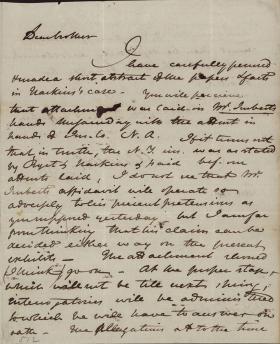 Dear brother
I have carefully perused
& made a short abstract of the papers & facts
in Harkins's case. You will perceive
that attachment was laid in Mr. Imbert's
hands same day with the attmt in
hands of Ins. Co. N. A. If it turns out
that in truth, the N. Y. ins. was
by & Harkins & paid before
attmts laid, I do not see that Mr.
Imbert's affidavit will operate so
adversely to his present pretensions as
you supposed yesterday; but I am far
from thinking that his claim can be
decided either way on the present
The attachment
(I think) good. At the proper stage,
which will not be till next spring,
interrogatories will be administered
to which he will have to answer on
oath. The allegations as to the time